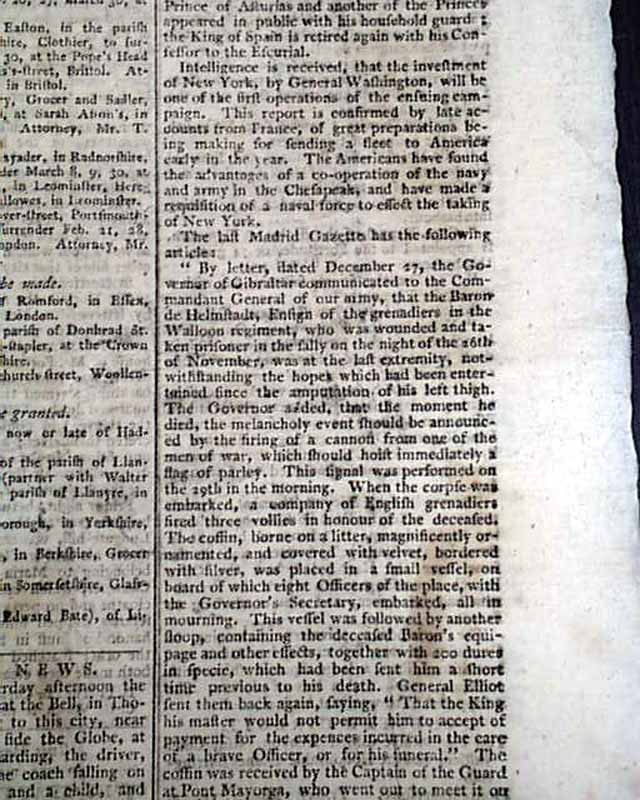 Easton, in the parish
hire, Clothier, to sur-
30, at the Pope's Head
s's-street, Bristol. At-
in Bristol.
ry, Grocer and Sadler,
at Sarah in
Attorney, Mr. T.
ayader, in Radnorshire,
der March 8, 9, 30, at
, in Leominster, Here-
allowes, in Leominster.
over-street, Portsmouth-
surrender Feb. 21, 28,
ondon. Attorney, Mr.
be made.
f Romford, in Essex,
London.
parish of Donhead St.
-stapler, at the Crown
shire.
church-street, Woollen-
e granted.
now or late of Had-
of the parish of Llan-
(partner with Walter
parish of Llanyre, in
orough, in Yorkshire,
, in Berkshire, Grocer
in Somersetshire, Glass-
Edward Bate), of Li-
NEWS.
rday afternoon the
at the Bell, in Tho-
to this city, near
side the Globe, at
arding, the driver,
he coach falling on
and a child, and
Prince of Asturias and another of the Princes
appeared in public with his household guard;
the King of Spain is retired again with his Con-
fessor to the Escurial.
Intelligence is received, that the investment
of New York, by General Washington, will be
one of the first operations of the ensuing cam-
paign. This report is confirmed by late ac-
counts from France, of great preparations be-
ing making for sending a fleet to America
early in the year. The Americans have found
the advantages of a co-operation of the navy
and army in the Chesapeak, and have made a
requisition of a naval force to effect the taking
of New York.
The last Madrid Gazette has the following
article:
" By letter, dated December 27, the Go-
vernor of Gibraltar communicated to the Com-
mandant General of our army, that the Baron
de Helmstadt, Ensign of the grenadiers in the
Walloon regiment, who was wounded and ta-
ken prisoner in the sally on the night of the 26th
of November, was at the last extremity, not-
withstanding the hopes which had been enter-
tained since the amputation of his left thigh.
The Governor added, that the moment he
died, the melancholy event should be announc-
ed by the firing of a cannon from one of the
men of war, which should hoist immediately a
flag of parley. This signal was performed on
the 29th in the morning. When the corpse was
embarked, a company of English grenadiers
fired three vollies in honour of the deceased.
The coffin, borne on a litter, magnificently or-
namented, and covered with velvet, bordered
with silver, was placed in a small vessel, on
board of which eight Officers of the place, with
the Governor's Secretary, embarked, all in
mourning. This vessel was followed by another
sloop, containing the deceased Baron's equi-
page and other effects, together with 200 duros
in specie, which had been sent him a short
time previous to his death. General Elliot
sent them back again, saying, " That the King
his master would not permit him to accept of
payment for the expences incurred in the care
of a brave Officer, or for his funeral." The
coffin was received by the Captain of the Guard
at Pont Mayorga, who went out to meet it on